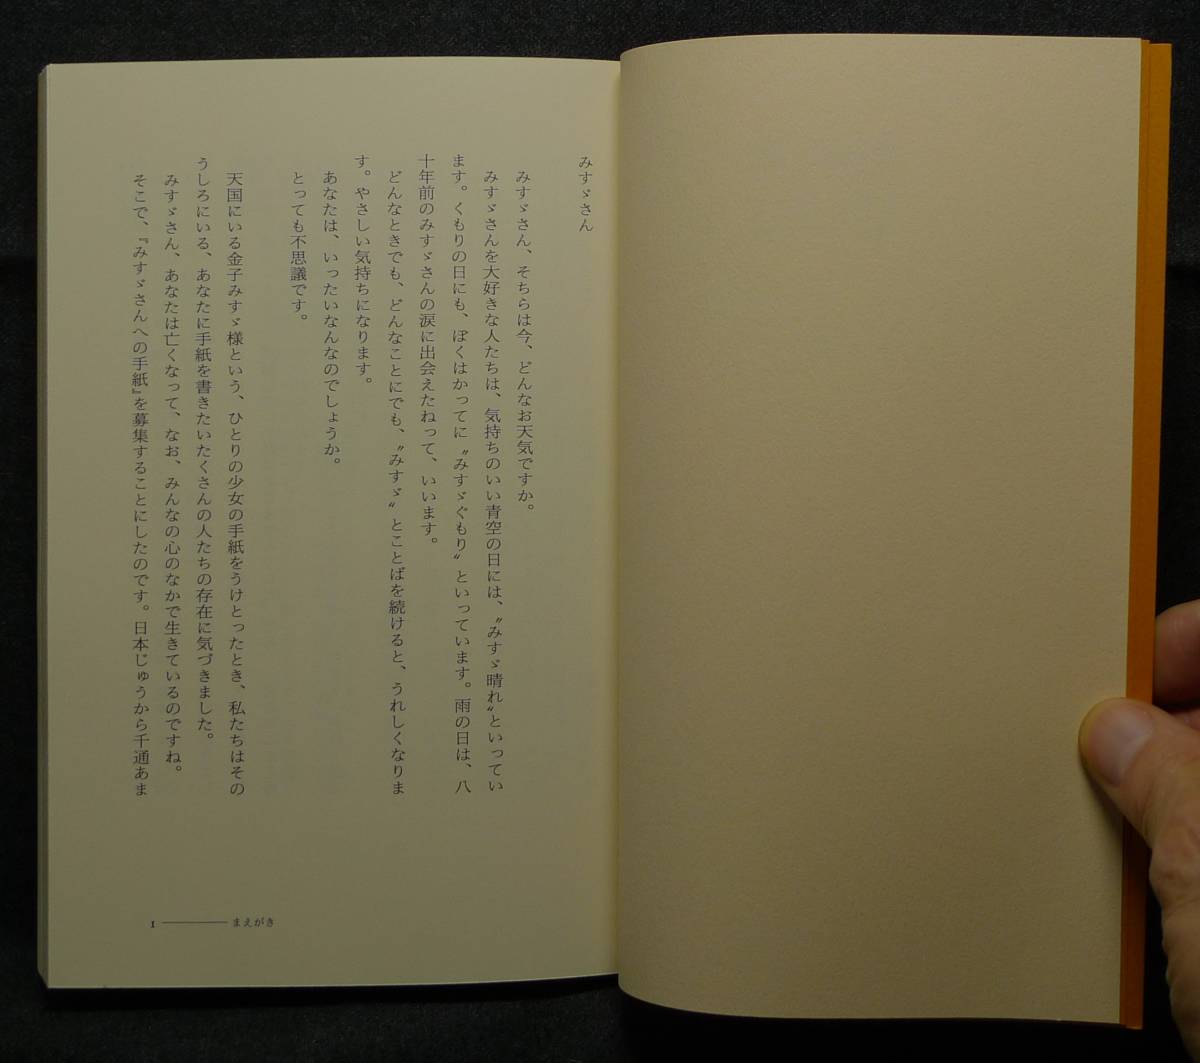 みすゞさん
みすゞさん、そちらは今、どんなお天気ですか。
みすゞさんを大好きな人たちは、気持ちのいい青空の日には、〝みすゞ晴れ〟といってい
ます。くもりの日にも、ぼくはかってに〝みすゞぐもり〟といっています。雨の日は、八
十年前のみすゞさんの涙に出会えたねって、いいます。
どんなときでも、どんなことにでも、〝みすゞ〟とことばを続けると、うれしくなりま
す。やさしい気持ちになります。
あなたは、いったいなんなのでしょうか。
とっても不思議です。
天国にいる金子みすゞ様という、ひとりの少女の手紙をうけとったとき、私たちはその
うしろにいる、あなたに手紙を書きたいたくさんの人たちの存在に気づきました。
みすゞさん、あなたは亡くなって、なお、みんなの心のなかで生きているのですね。
そこで、『みすゞさんへの手紙』を募集することにしたのです。日本じゅうから千通あま
1 まえがき